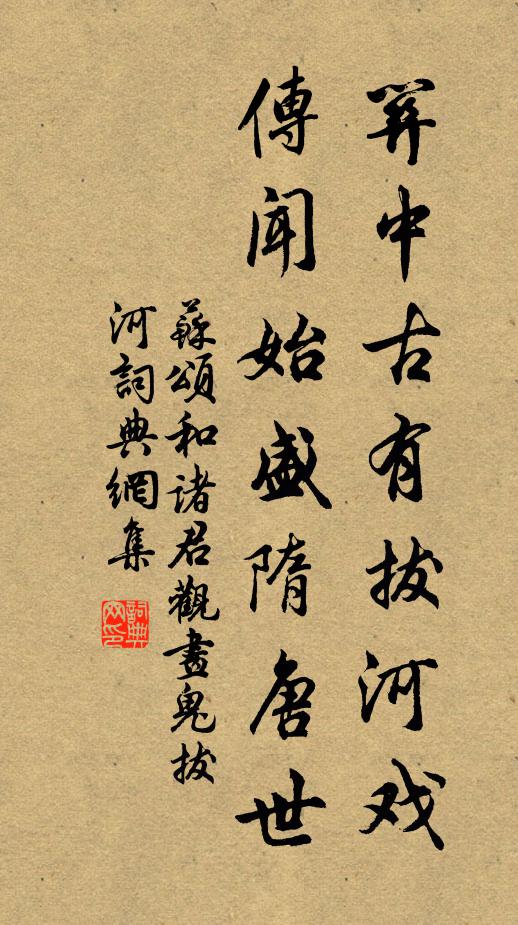 關中古有拔河戏
傳闻始盛隋唐世
蘇頌和諸君觀畫鬼拔
河詞典網集
詞典
网印